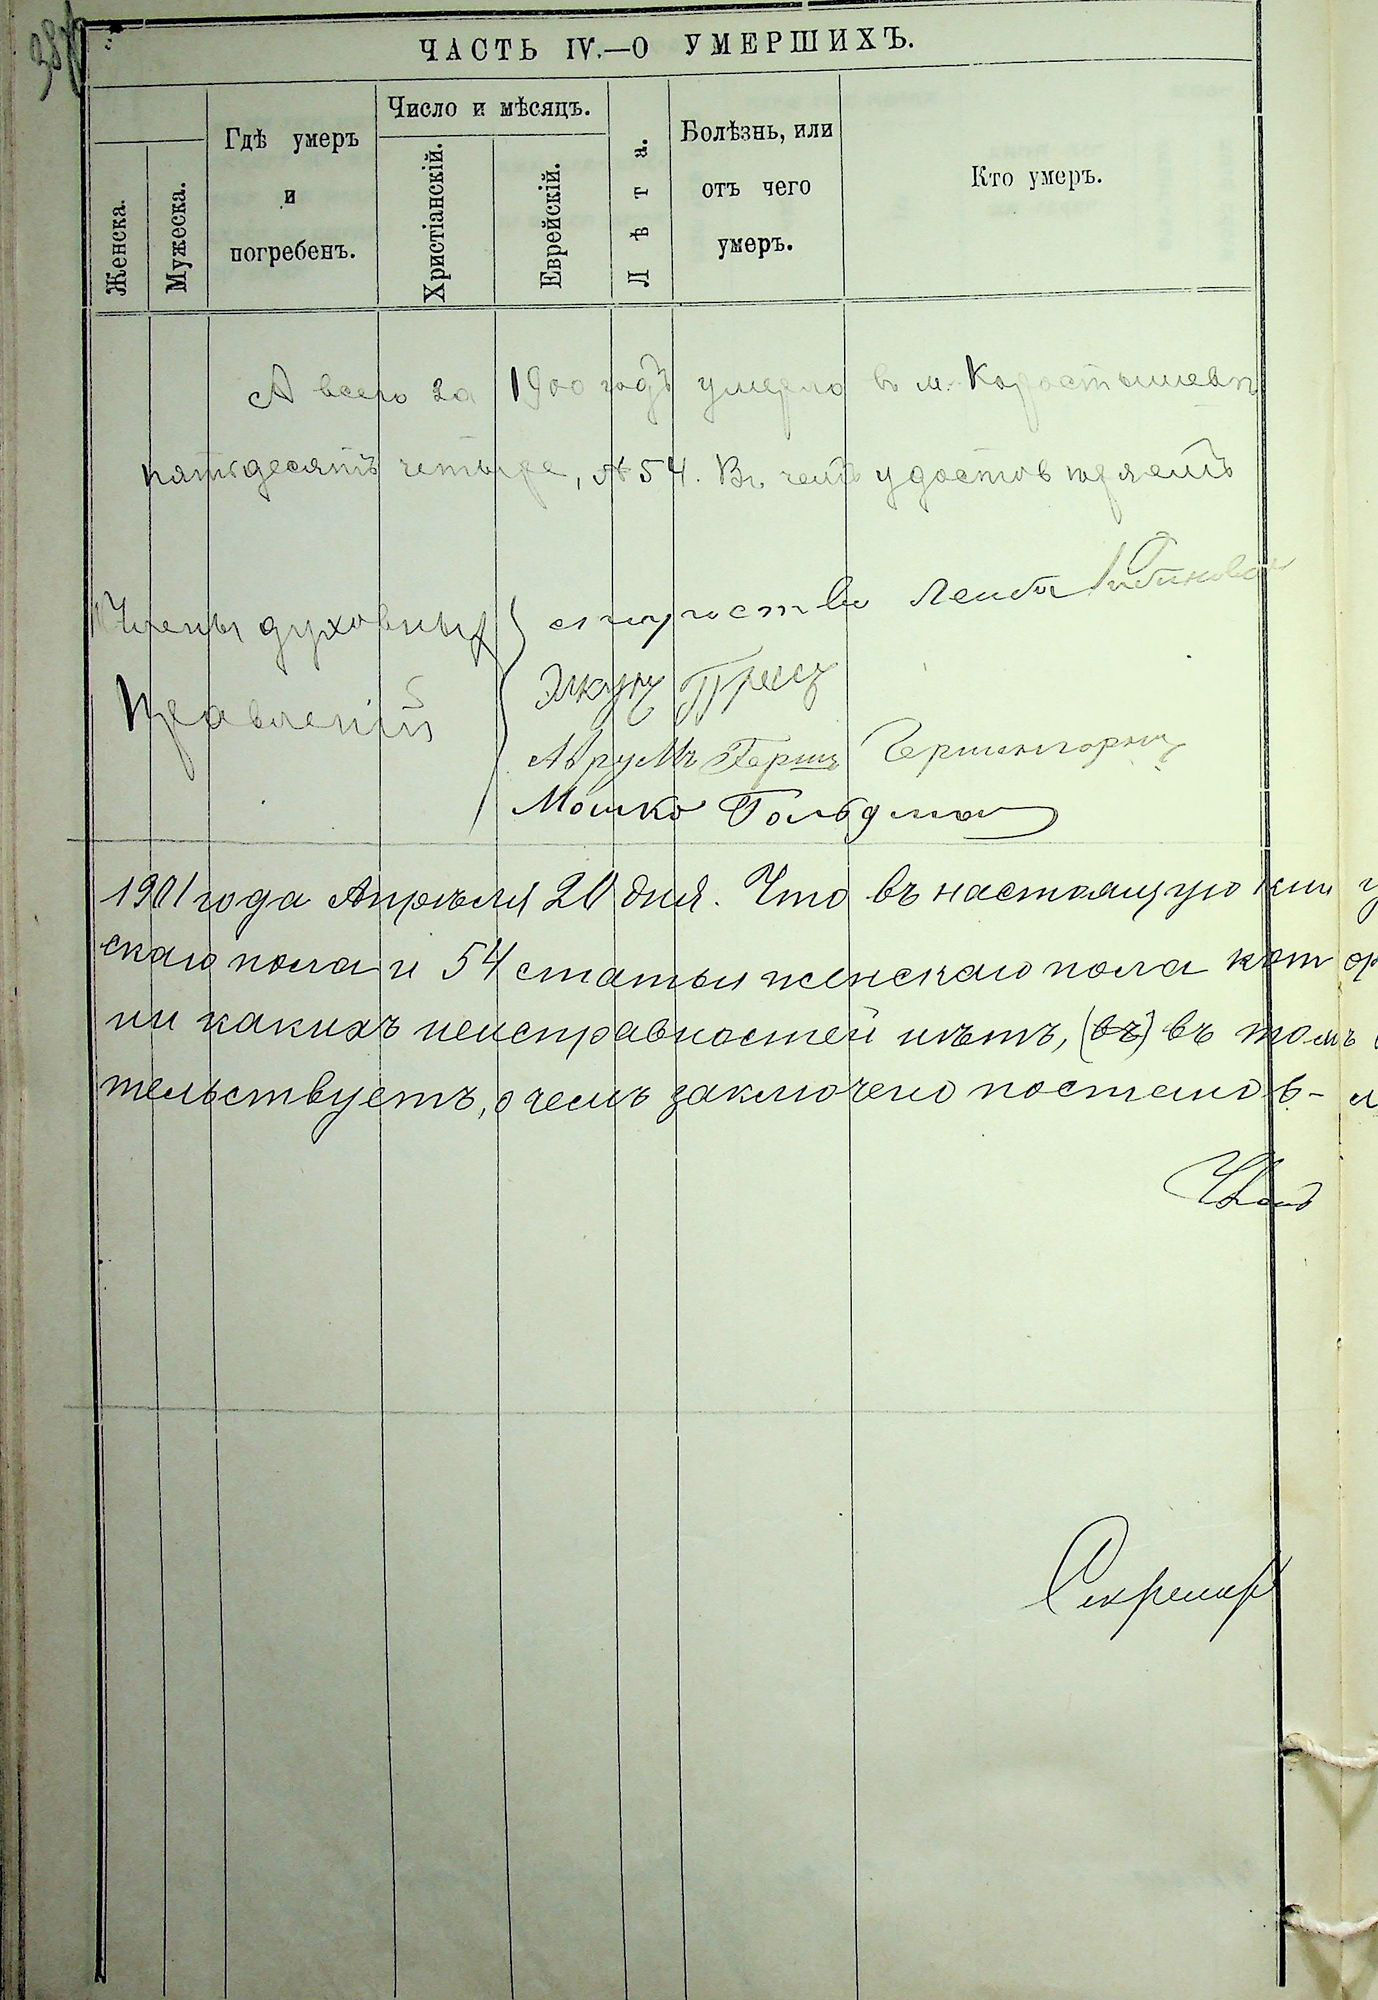 ЧАСТЬ IV.—О УМЕРШИХЪ.
Женска.
Мужеска.
Гдѣ умеръ
и
погребенъ.
Число и мѣсяцъ.
Христіанскій.
Еврейскій.
Лѣта.
Болѣзнь, или
отъ чего
умеръ.
Кто умеръ.
А всего за 1900 годъ умерло в м. Коростышевѣ
пятьдесятъ четыре, № 54. Въ чемъ удостовѣряемъ
Члены духовныхъ
Правленій
староство Лейба Рабинович
Элкунъ
Аврумъ Герш
Мошко Гольдман
1901 года Апрѣля 20 дня. Что въ настоящую кни
скаго пола и 54 статьи женскаго пола кот
ни какихъ неисправностей нѣтъ, (въ) въ томъ
тельствуетъ, о чемъ заключено постанов-
Член
Секретар